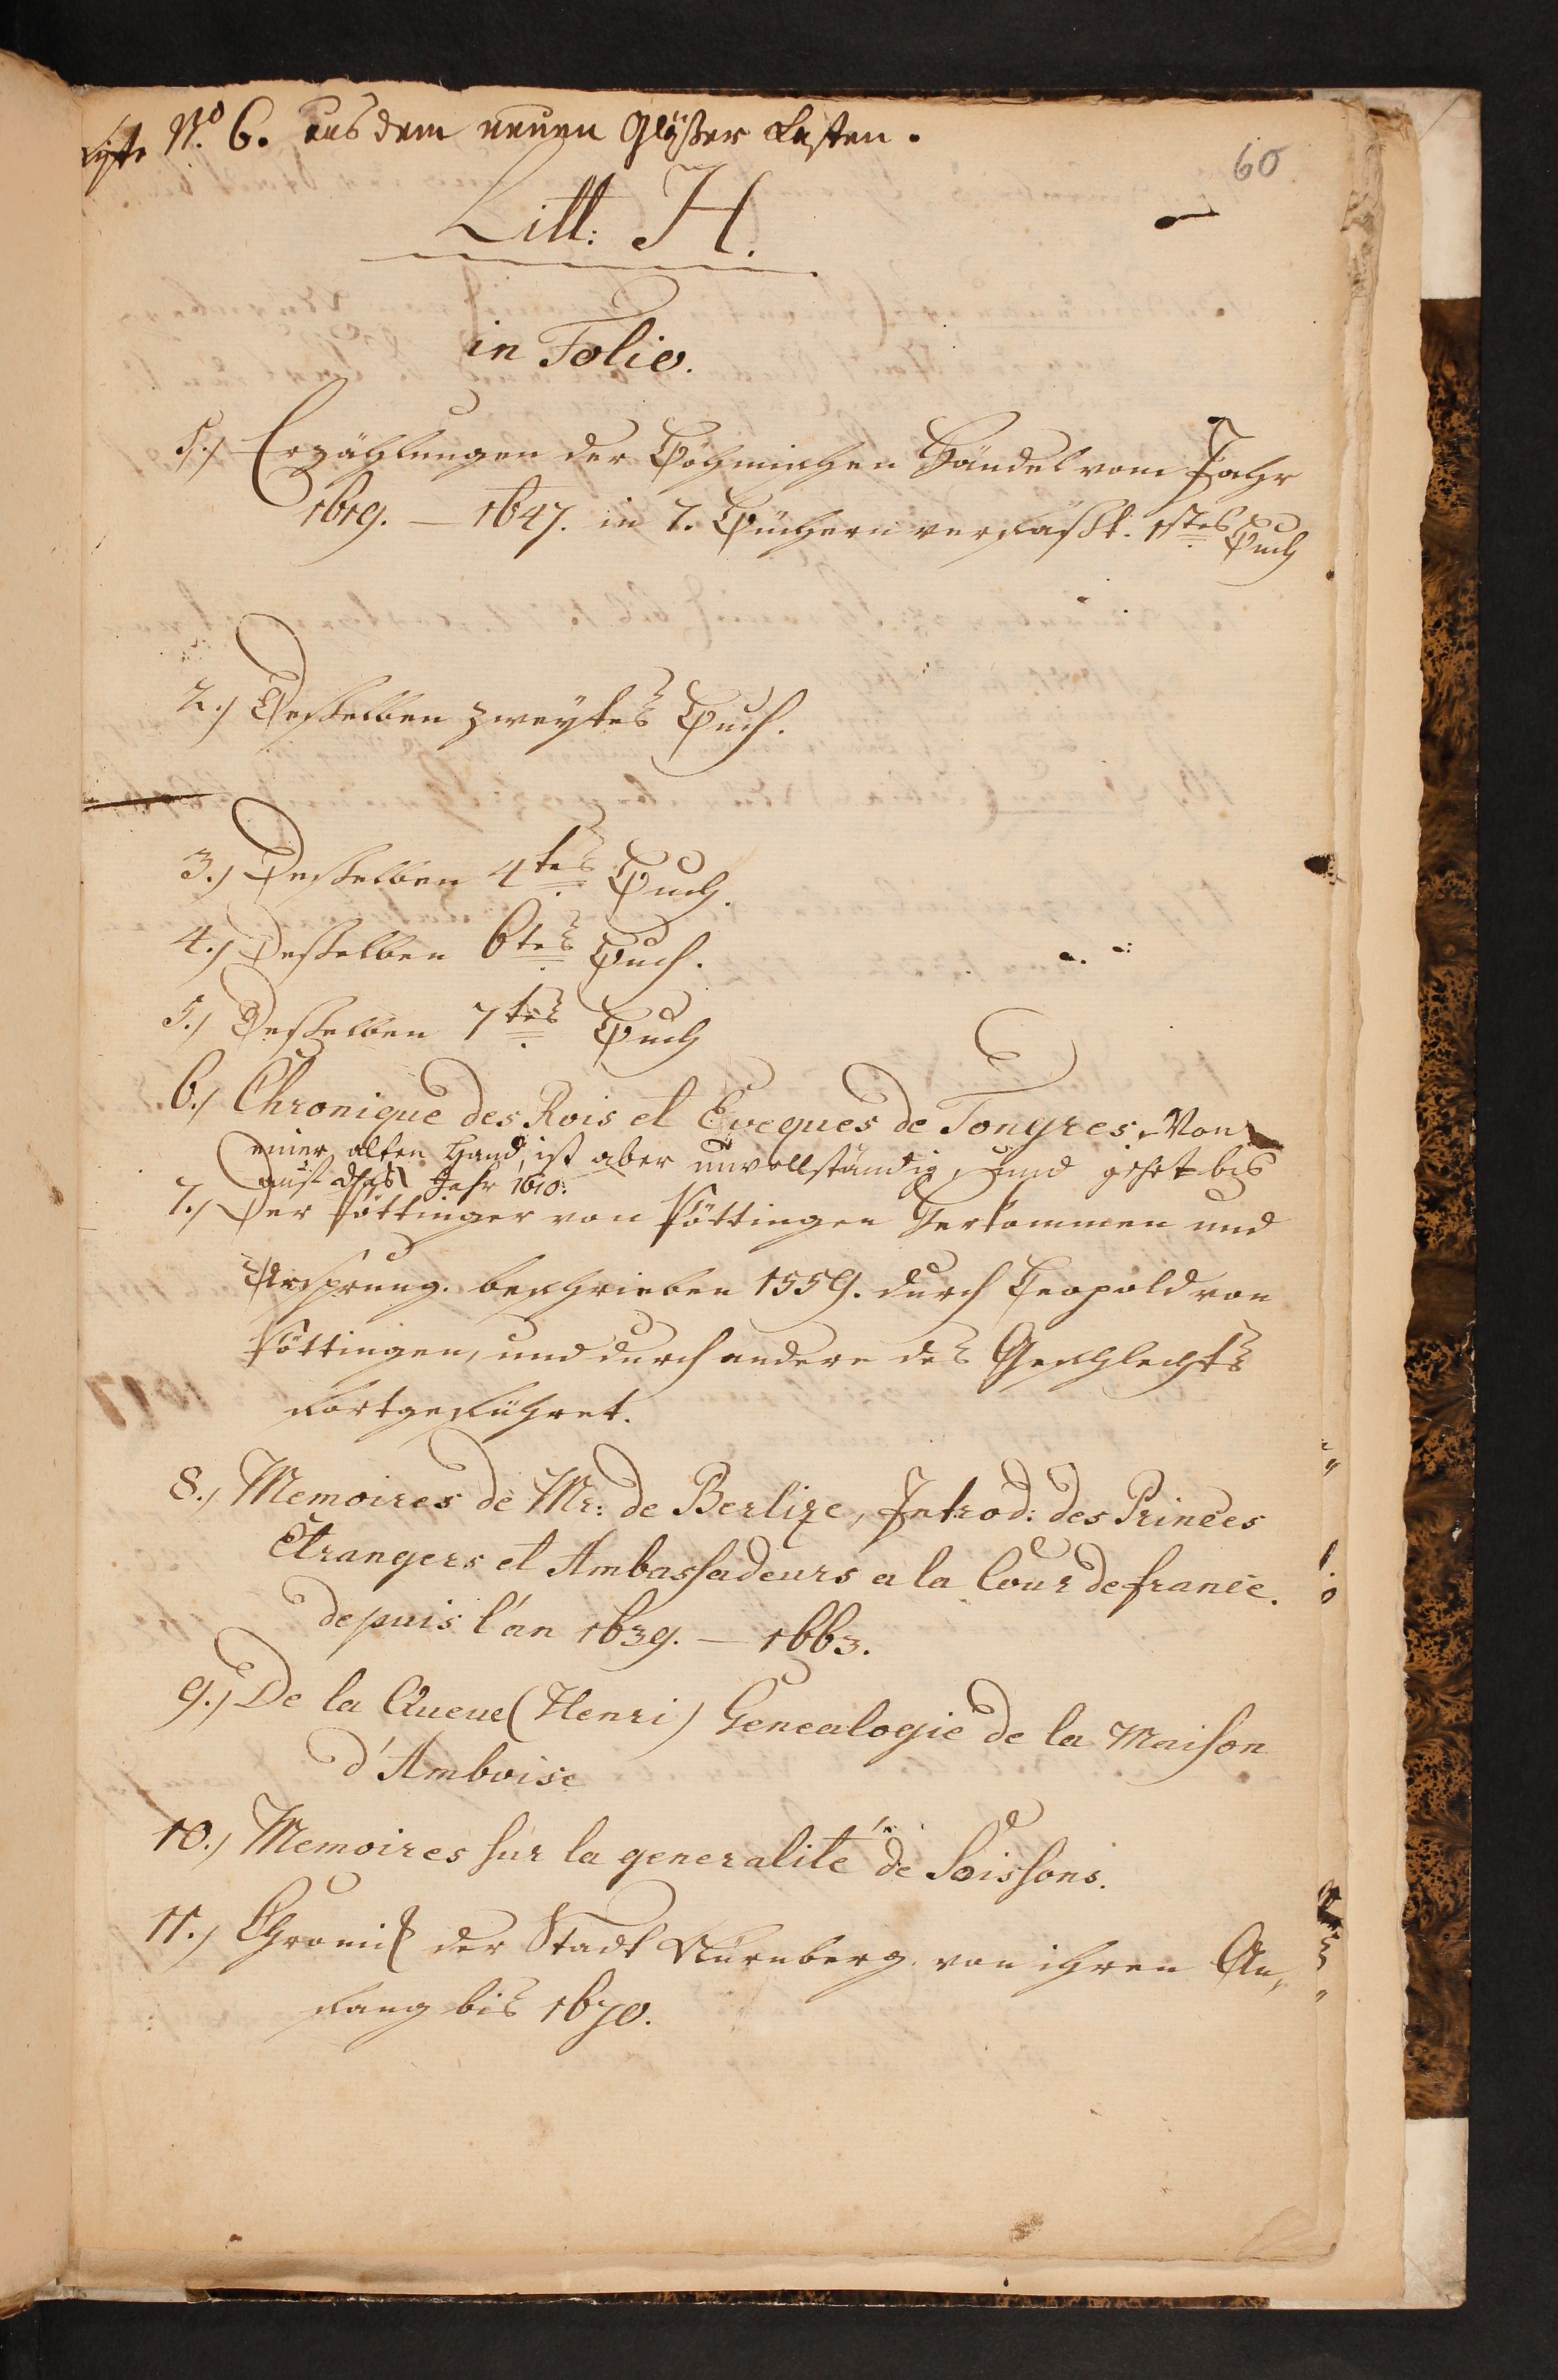 N.o 6. aus dem neuen Gläßer Kasten.
60
Litt: H.
in Folio.
1.) Erzählungen der Böhmischen Händel vom Jahr
1619. — 1647. in 7. Büchern verfaßt. 1stes Buch
2.) Desselben zweytes Buch.
3.) Desselben 4tes Buch.
4.) Desselben 6tes Buch.
5.) Desselben 7tes Buch
6.) Chronique des Rois et Eveques de Tongres. Von
einer alten Hand, ist aber unvollständig, und gehet bis
auf das Jahr 1610.
7.) Der Pöttinger von Pöttingen Herkommen und
Ursprung. beschrieben 1559. durch Leopold von
Pöttingen, und durch andere des Geschlechts
fortgeführet.
8.) Memoires de Mr: de Berlize, Introd: des Princes
Etrangers et Ambassadeurs a la Cour de france.
depuis l'an 1639. — 1663.
9.) De la Queue (Henri) Genealogie de la Maison
d'Amboise
10.) Memoires sur la generalité de Soissons.
11.) Chronik der Stadt Nürnberg. von ihren An,
fang bis 1670.